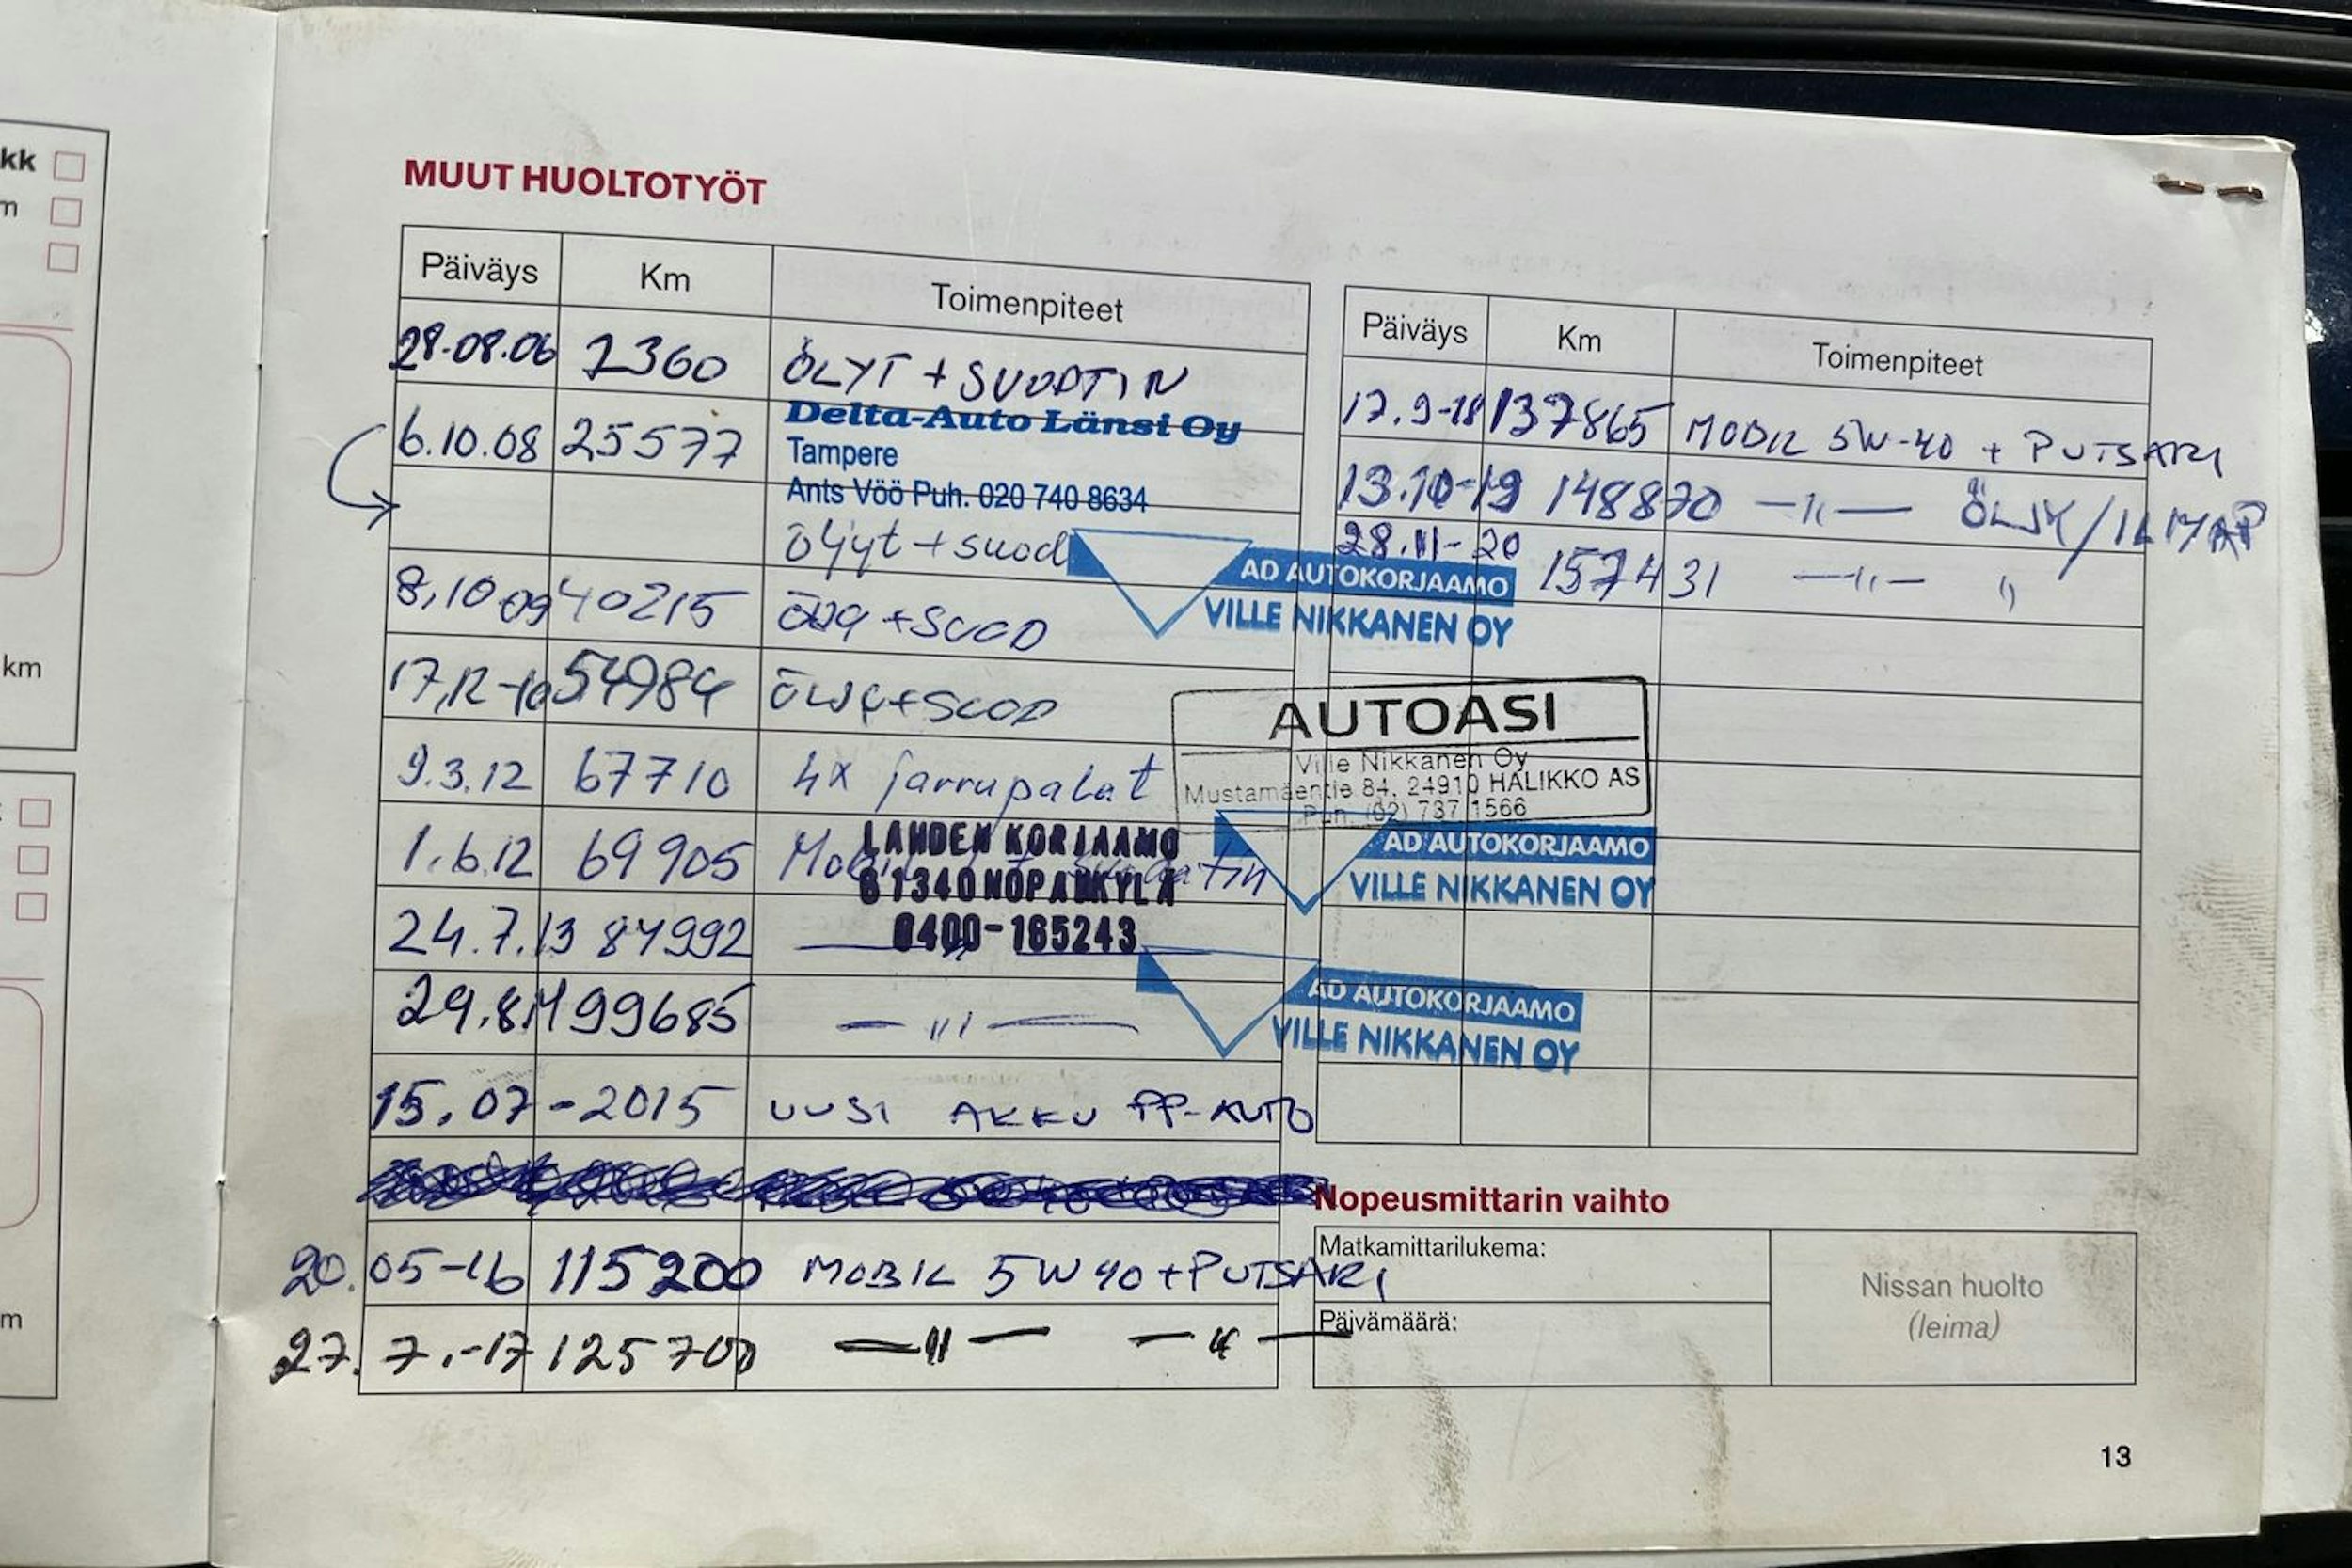 kk
m
km
m
MUUT HUOLTOTYÖT
Päiväys Km Toimenpiteet
28.08.06 2360 ÖLYT + SUODATIN
6.10.08 25577 Delta-Auto Länsi Oy
Tampere
Ants Vöö Puh. 020 740 8634
öljyt + suod
8,10 09 40215 + SUOD
17,12-10 54984 ÖLJY + SUOD
9.3.12 67710 4x jarrupalat
1.6.12 69905 Mobil
LAHDEN KORJAAMO
0400-165243
24.7.13 84992 —〃—
29.8.14 99685 —〃—
15.07-2015 UUSI AKKU PP-AUTO
20.05-16 115200 MOBIL 5W40+PUTSARI
27.7.-17 125700 —〃— —〃—
Päiväys Km Toimenpiteet
17.9-18 137865 MOBIL 5W-40 + PUTSARI
13.10-19 148870 —〃— ÖLJY/ILMA
28.11-20 157431 —〃— 〃
AD AUTOKORJAAMO
VILLE NIKKANEN OY
AUTOASI
Ville Nikkanen Oy
Mustamäentie 84, 24910 HALIKKO AS
Puh. (02) 737 1566
AD AUTOKORJAAMO
VILLE NIKKANEN OY
AD AUTOKORJAAMO
VILLE NIKKANEN OY
Nopeusmittarin vaihto
Matkamittarilukema:
Päivämäärä:
Nissan huolto
(leima)
13